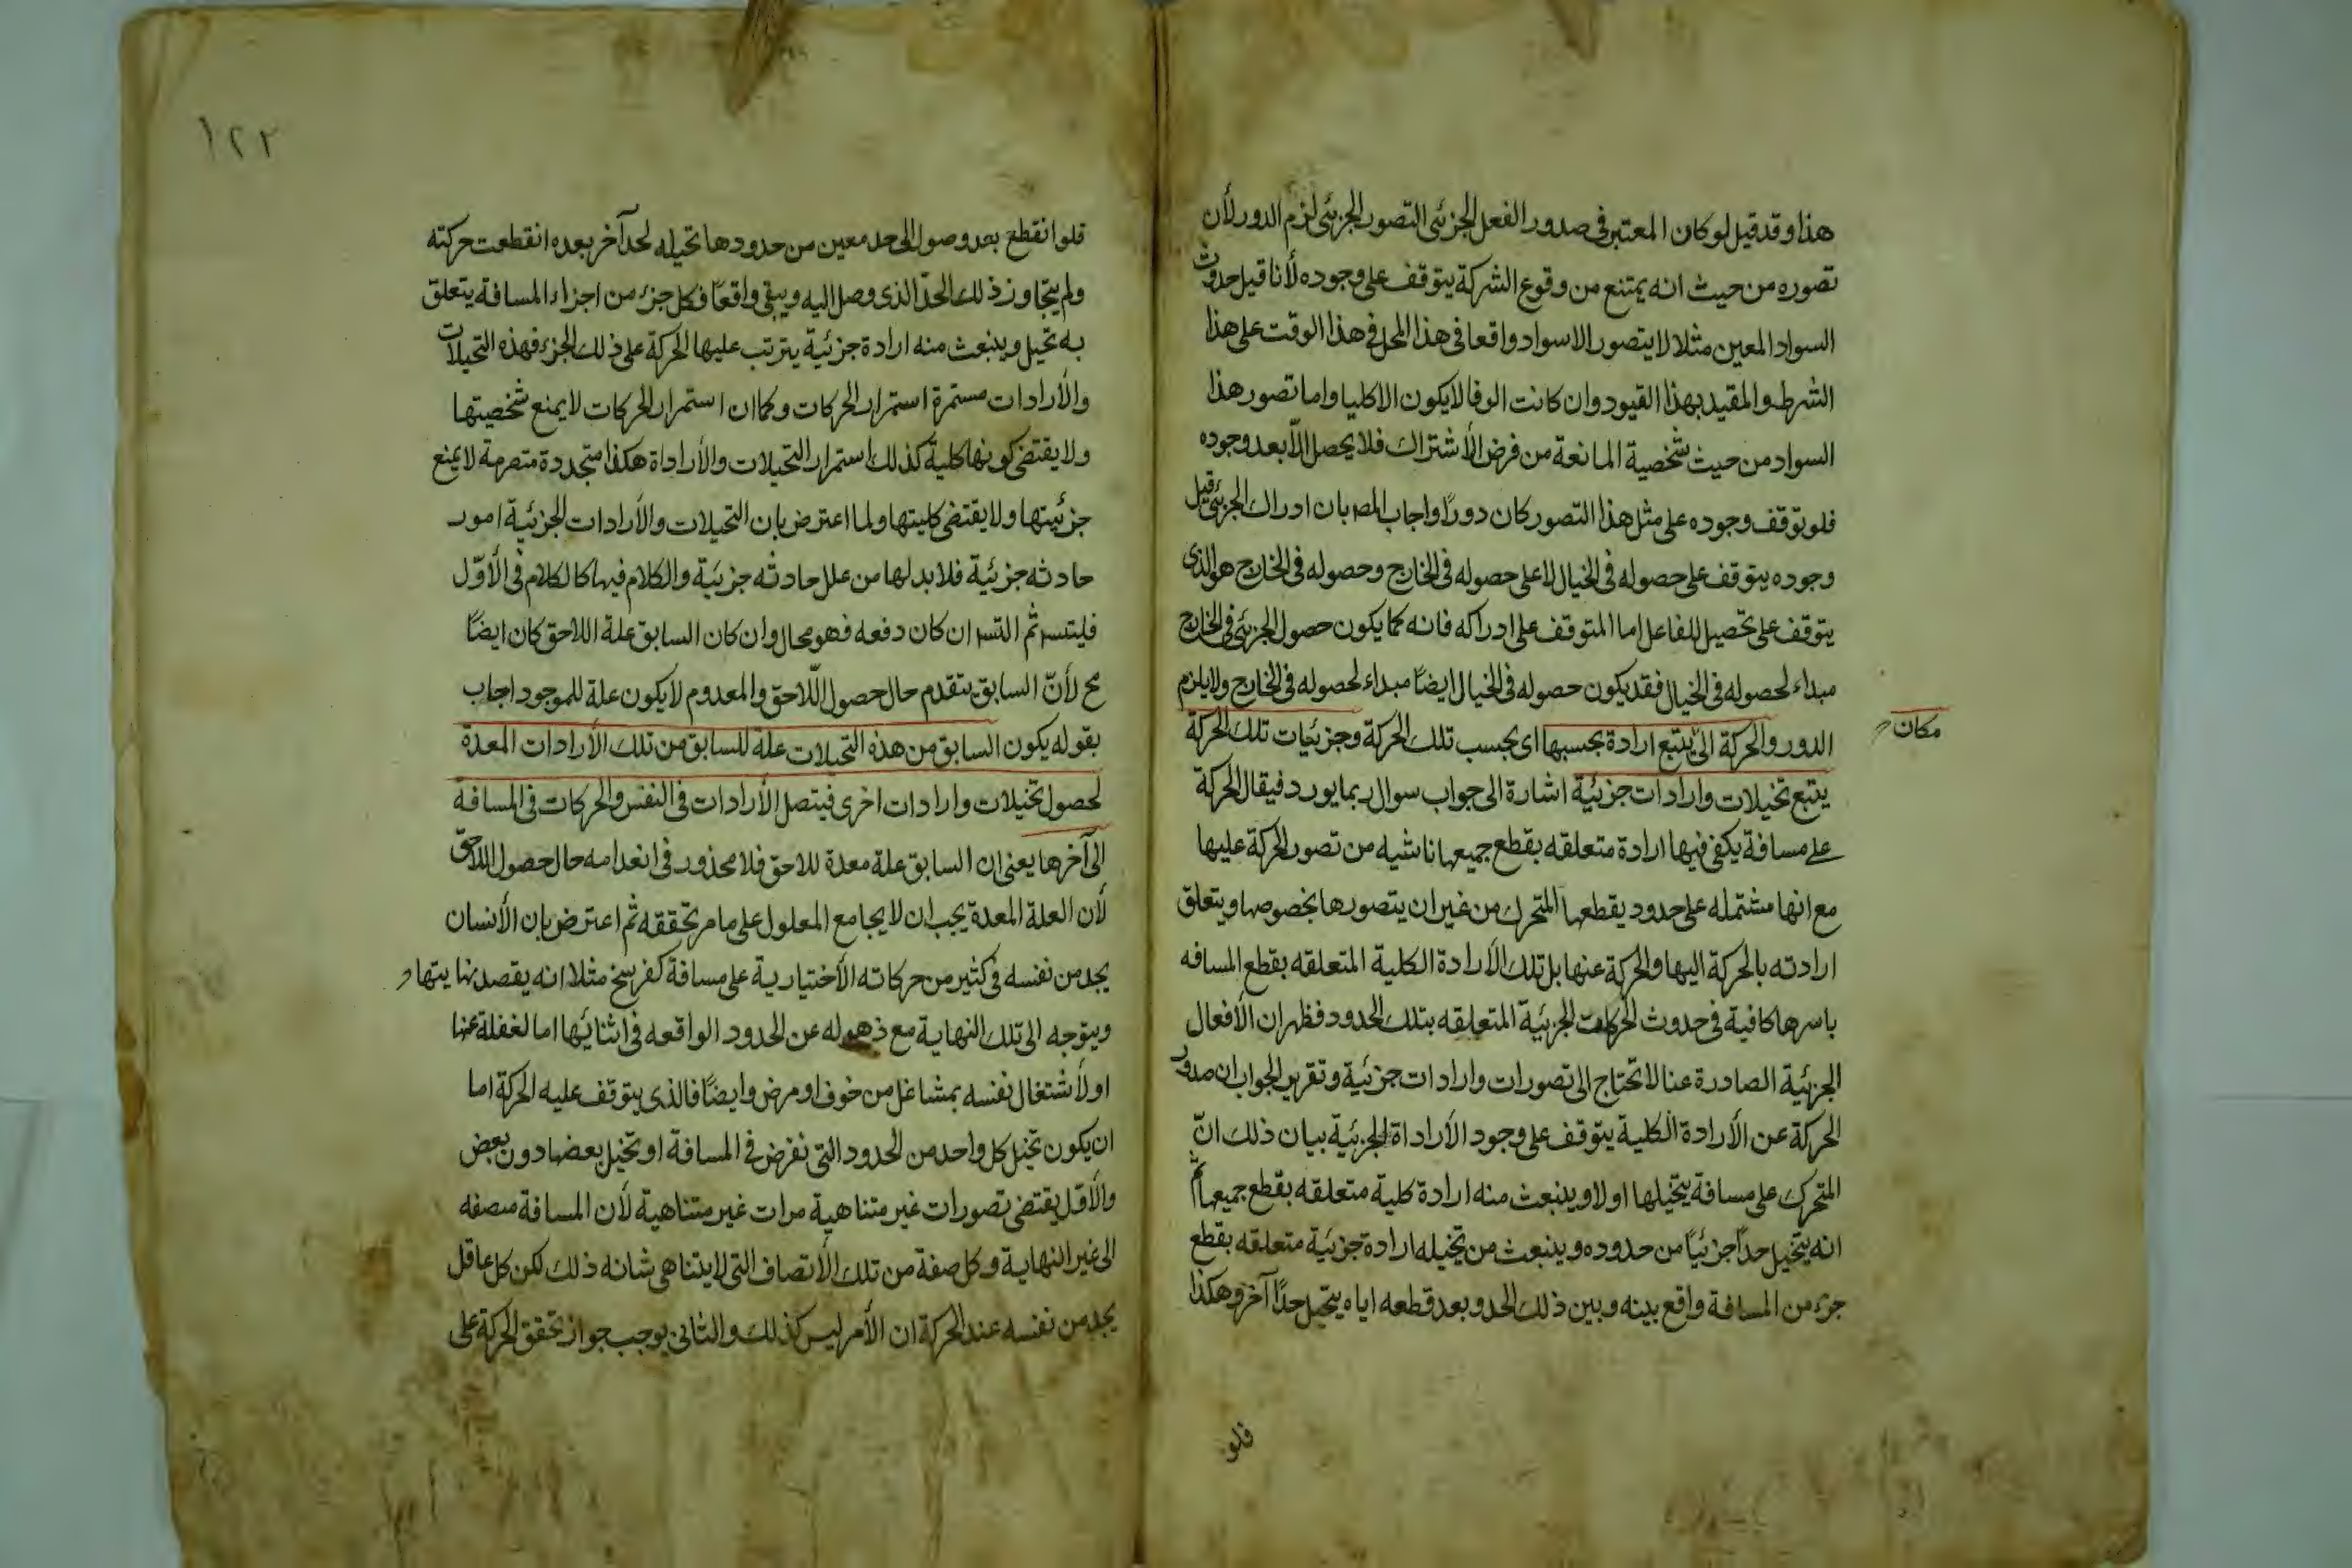 هذا وقد قيل لو كان المعتبر فى صدور الفعل الجزئى التصور الجزئى لزم الدور لأن
تصوره من حيث انه يمتنع من وقوع الشركة يتوقف على وجوده لأنا قيل حدوث
السواد المعين مثلا لا يتصور الا سواد واقعا فى هذا المحل فى هذا الوقت على هذا
الشرط والمقيد بهذا القيود وان كانت الوفا لا يكون الا كليا واما تصور هذا
السواد من حيث شخصية المانعة من فرض الأشتراك فلا يحصل الّا بعد وجوده
فلو توقف وجوده على مثل هذا التصور كان دورًا واجاب المصـ بان ادراك الجزئى قبل
وجوده يتوقف على حصوله فى الخيال لا على حصوله فى الخارج وحصوله فى الخارج هو الذى
يتوقف على تحصيل للفاعل اما المتوقف على ادراكه فانه كما يكون حصول الجزئى فى الخارج
مبداء لحصوله فى الخيال فقد يكون حصوله فى الخيال ايضًا مبداء لحصوله فى الخارج ولا يلزم
الدور والحركة الى يتبع ارادة بحسبها اى بحسب تلك الحركة وجزئيات تلك الحركة
مكان
يتبع تخيلات وارادات جزئية اشارة الى جواب سوال ربما يورد فيقال الحركة
على مسافة يكفى فيها ارادة متعلقه بقطع جميعها ناشيه من تصور الحركة عليها
مع انها مشتمله على حدود يقطعها المتحرك من غير ان يتصورها بخصوصها ويتعلق
ارادته بالحركة اليها والحركة عنها بل تلك الأرادة الكلية المتعلقه بقطع المسافه
باسرها كافية فى حدوث الحركات الجزئيّة المتعلقه بتلك الحدود فظهر ان الأفعال
الجزئية الصادرة عنا لا تحتاج الى تصورات وارادات جزئية وتقرير الجواب ان صدور
الحركة عن الأرادة الكلية يتوقف على وجود الأراداة الجزئية بيان ذلك انّ
المتحرك على مسافة يتخيلها اولا وينبعث منه ارادة كلية متعلقه بقطع جميعها ثم
انه يتخيل حدّا جزئيًا من حدوده وينبعث من تخيله ارادة جزئية متعلقه بقطع
جزء من المسافة واقع بينه وبين ذلك الحد وبعد قطعه اياه يتخيل حدًا آخر وهكذا
فلو
١٢٢
فلو انقطع بعد وصول الى حد معين من حدودها تخيله لحد آخر بعده انقطعت حركته
ولم يتجاوز ذلك الحدّ الذى وصل اليه ويبقى واقعًا فكل جزء من اجزاء المسافة يتعلق
به تخيل وينبعث منه ارادة جزئية يترتب عليها الحركة على ذلك الجزء فهذه التخيلات
والأرادات مستمرة استمرار الحركات وكما ان استمرار الحركات لا يمنع شخصيتها
ولا يقتضى كونها كلية كذلك استمرار التخيلات والأراداة هكذا متجددة متصرمة لا يمنع
جزئيتها ولا يقتضى كليتها ولما اعترض بان التخيلات والأرادات الجزئية امور
حادثه جزئية فلا بد لها من علل حادثه جزئية والكلام فيها كالكلام فى الأوّل
فليتسـ ثم التسـ ان كان دفعه فهو محال وان كان السابق علة اللاحق كان ايضًا
مح لأنّ السابق يتقدم حال حصول اللّاحق والمعدوم لا يكون علة للموجود اجاب
بقوله يكون السابق من هذه التخيلات علة للسابق من تلك الأرادات المعدة
لحصول تخيلات وارادات اخرى فيتصل الأرادات فى النفس والحركات فى المسافة
الى آخرها يعنى ان السابق علة معدة للاحق فلا محذور فى انعدامه حال حصول اللاحق
لأن العلة المعدة يجب ان لا يجامع المعلول على ما مر تحققه ثم اعترض بان الأنسان
يجد من نفسه فى كثير من حركاته الأختيارية على مسافة كفرسخ مثلا انه يقصد نهايتها و
ويتوجه الى تلك النهاية مع ذهوله عن الحدود الواقعه فى اثنائها اما لغفلة عنها
او لأشتغال نفسه بمشاغل من خوف او مرض وايضًا فالذى يتوقف عليه الحركة اما
ان يكون تخيل كل واحد من الحدود التى نفرض فى المسافة او تخيل بعضها دون بعض
والأول يقتضى تصورات غير متناهية مرات غير متناهية لأن المسافة منصفه
الى غير النهاية وكل صفة من تلك الأنصاف التى لا يتناهى شانه ذلك لكن كل عاقل
يجد من نفسه عند الحركة ان الأمر ليس كذلك والثانى يوجب جواز تحقق الحركة على